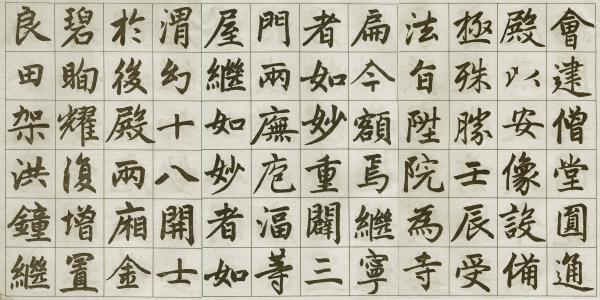 會建僧堂圓通
殿以安像設備
極殊勝壬辰受
法旨陞院為寺
扁今額焉繼寧
者如妙重闢三
門兩廡庖湢等
屋繼如妙者如
渭幻十八開士
於後殿兩廂金
碧眴耀復增置
良田架洪鐘繼